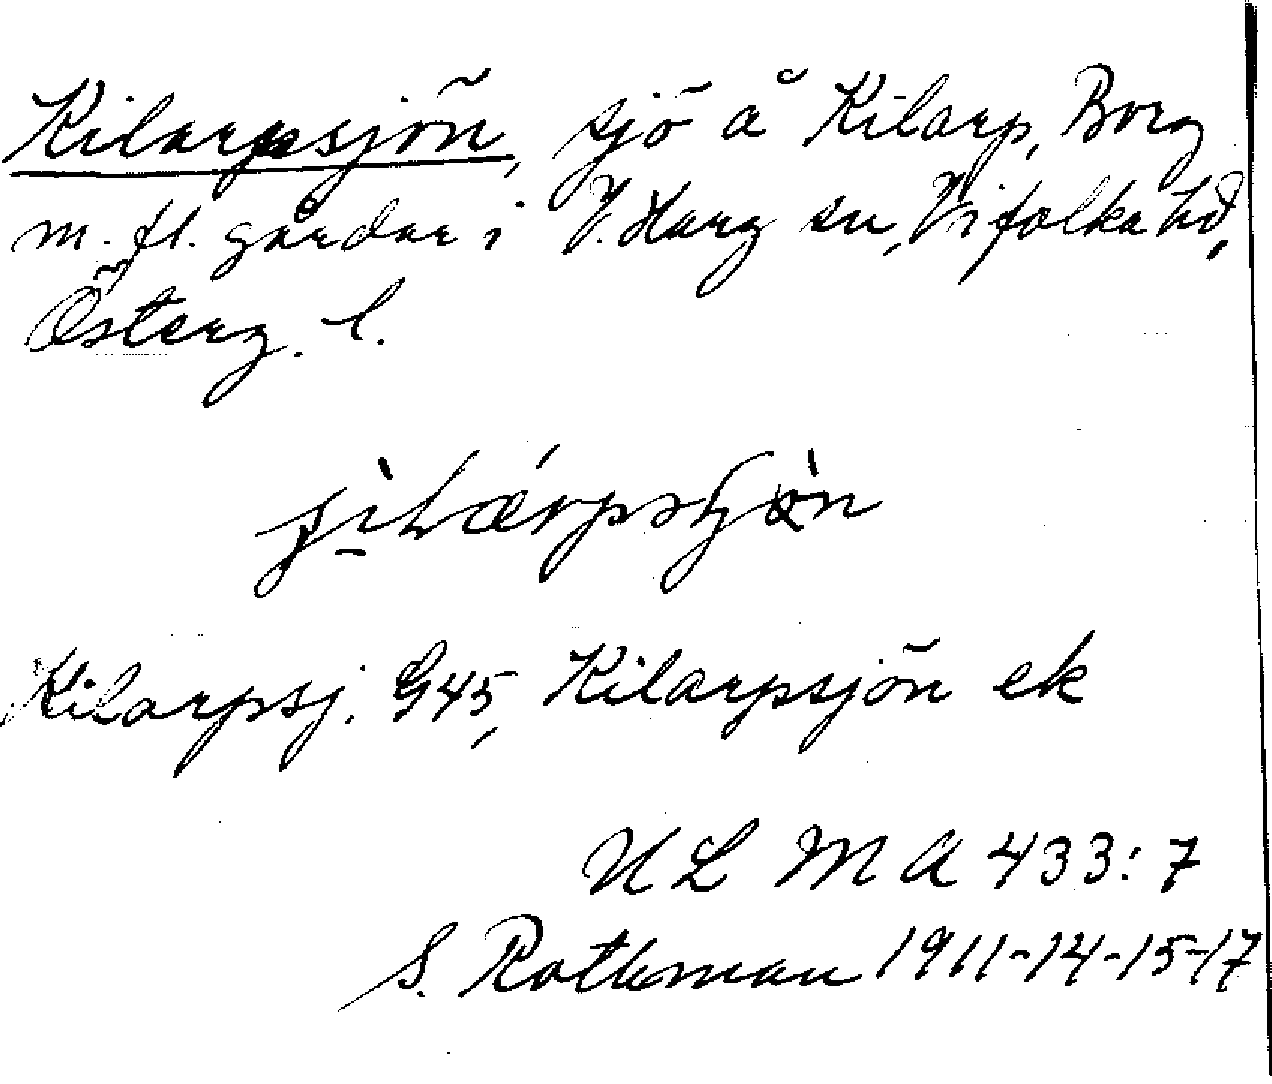 Kilarpsjön, sjö å Kilarp, Borg
m. fl. gårdar i V. Harg sn, Vifolka hd,
Österg. l.
Kilarpsj. G45, Kilarpsjön ek
ULMA 433:7
S. Rothman 1911-14-15-17